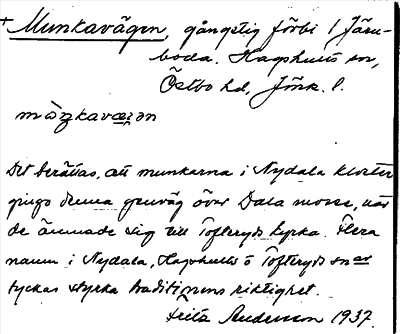 + Munkavägen, gångstig förbi 1 Järu-
boda. Hagshults sn,
Östbo hd, Jönk. l.
Det berättas, att munkarna i Nydala kloster
gingo denna genväg över Dala mosse, när
de ämnade sig till Tofteryds kyrka. Flera
namn i Nydala, Hagshults o Tofteryds snar
tyckas styrka traditionens riktighet.
Frits Andersson 1937.